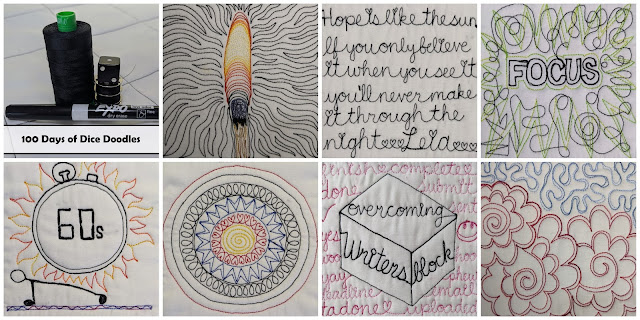 EXPO
dry erase
100 Days of Dice Doodles
Hope is like the sun
If you only believe
it when you see it
you'll never make
it through the
night Leia
FOCUS
60s
complete
done submit
sent
overcoming
Writers block
deadline email
tadone uploaded